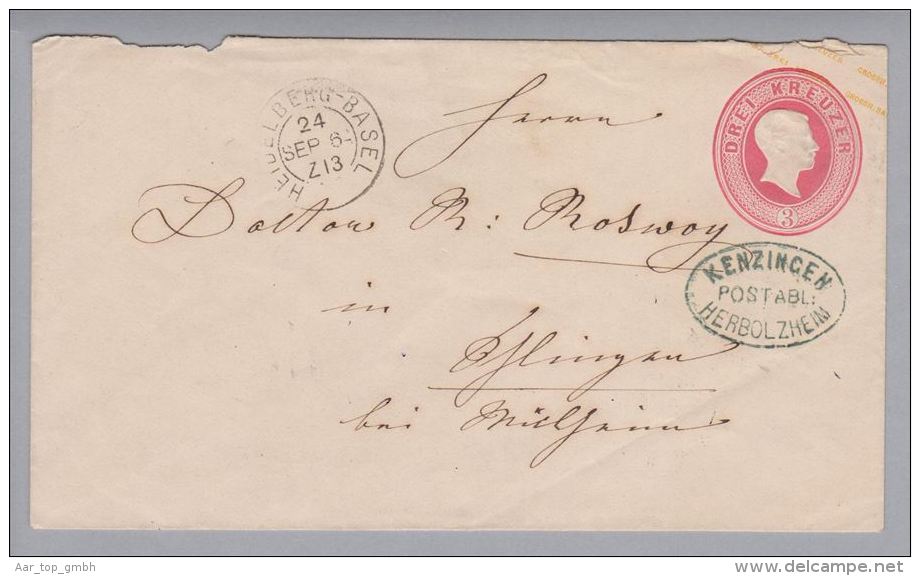 HEIDELBERG-BASEL
24
SEP 6
Z13
DREI KREUZER
3
Herrn
Doktor R: Roswog
in
Schlingen
bei Müllheim
KENZINGEN
POSTABL:
HERBOLZHEIM
Aar_top_gmbh
www.delcampe.net